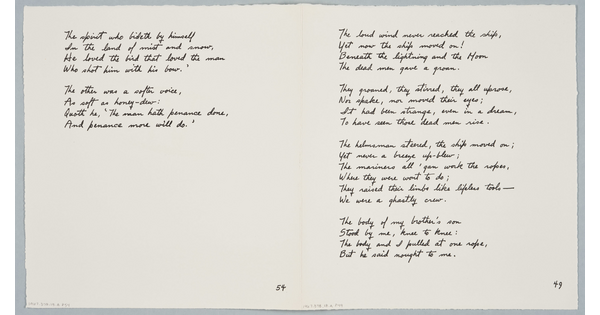 The spirit who bideth by himself
In the land of mist and snow,
He loved the bird that loved the man
Who shot him with his bow.'
The other was a softer voice,
As soft as honey-dew:
Quoth he, 'The man hath penance done,
And penance more will do.'
54
The loud wind never reached the ship,
Yet now the ship moved on!
Beneath the lightning and the Moon
The dead men gave a groan.
They groaned, they stirred, they all uprose,
Nor spake, nor moved their eyes;
It had been strange, even in a dream,
To have seen those dead men rise.
The helmsman steered, the ship moved on;
Yet never a breeze up-blew;
The mariners all 'gan work the ropes,
Where they were wont to do;
They raised their limbs like lifeless tools—
We were a ghastly crew.
The body of my brother's son
Stood by me, knee to knee:
The body and I pulled at one rope,
But he said nought to me.
49